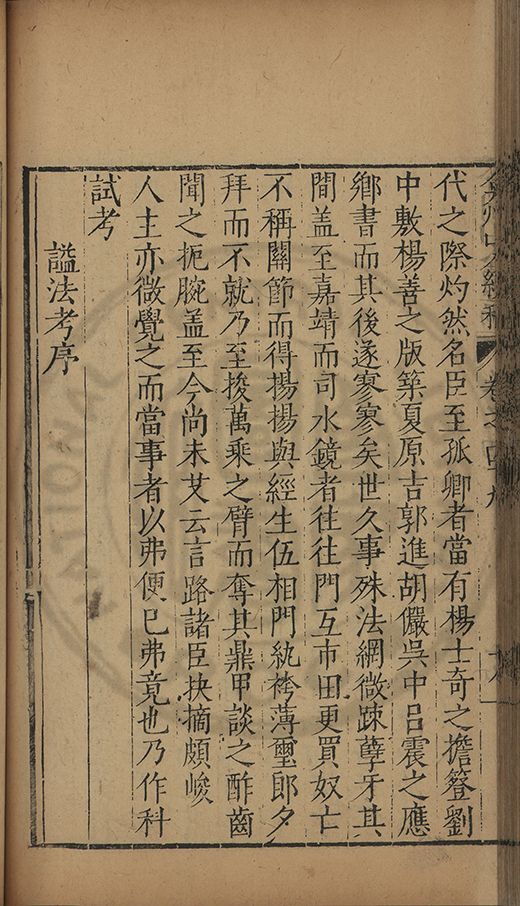 代之際灼然名臣至孤卿者當有楊士奇之擔簦劉
中敷楊善之版築夏原吉郭進胡儼吳中呂震之應
鄉書而其後遂寥寥矣世久事殊法網微踈孽牙其
間盖至嘉靖而司水鏡者往往門互市田更買奴亡
不稱關節而得揚揚與經生伍相門紈袴薄璽郎夕
拜而不就乃至捘萬乘之臂而奪其鼎甲談之酢齒
聞之扼腕盖至今尚未艾云言路諸臣抉摘頗峻
人主亦微覺之而當事者以弗便已弗竟也乃作科
試考
諡法考序